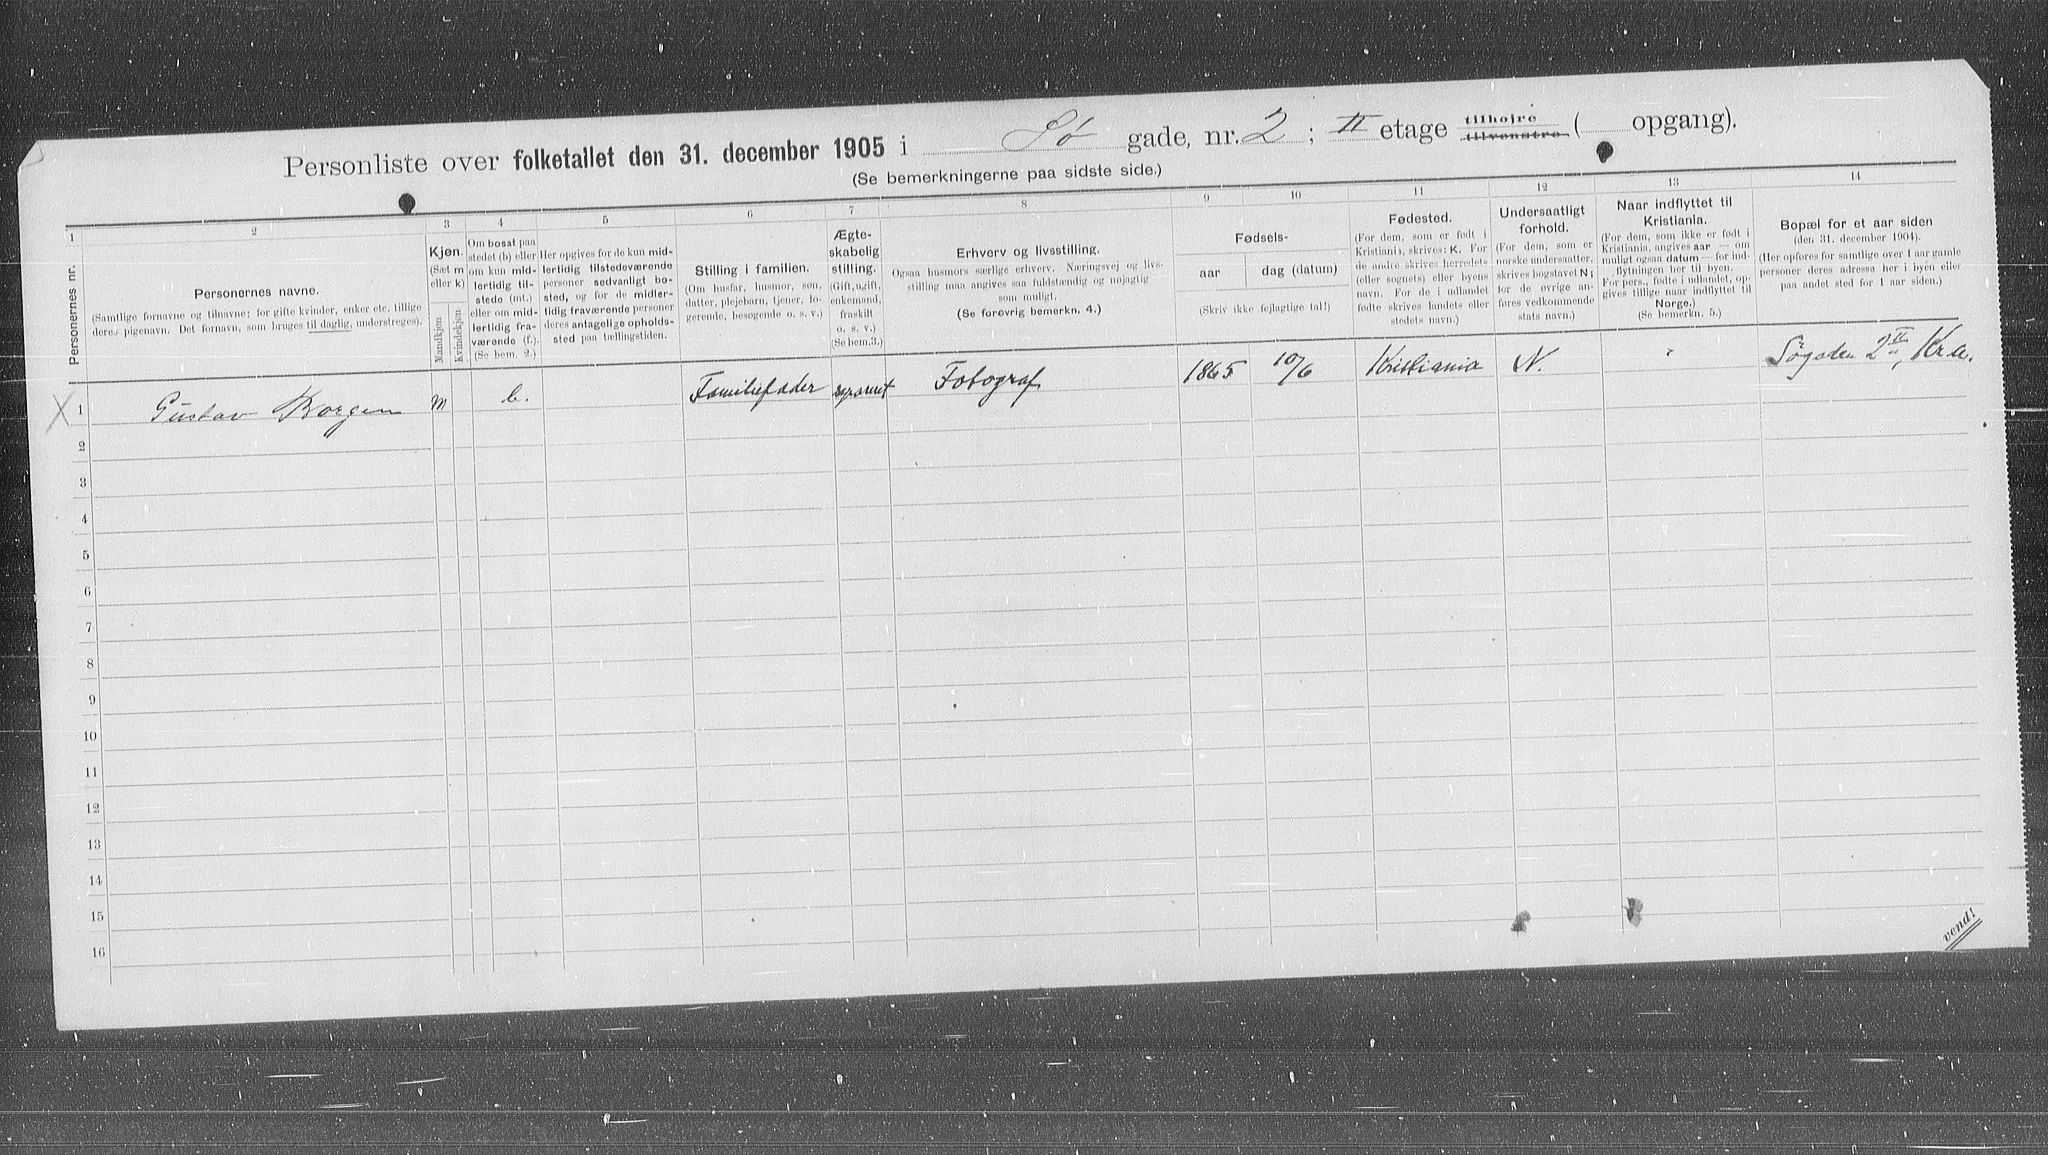 Personliste over folketallet den 31. december 1905 i Sö gade, nr. 2 ; II etage tilhøjre tilvenstre ( opgang).
(Se bemerkningerne paa sidste side.)
1 2 3 4 5 6 7 8 9 10 11 12 13 14
Personernes nr.
Personernes navne.
(Samtlige fornavne og tilnavne; for gifte kvinder, enker etc. tillige
deres pigenavn. Det fornavn, som bruges til daglig, understreges).
Kjøn.
(Sæt m
eller k)
Mandkjøn
Kvindekjøn
Om bosat paa
stedet (b) eller
om kun mid-
lertidig til-
stede (mt.)
eller om mid-
lertidig fra-
værende (f.).
(Se bem. 2.)
Her opgives for de kun mid-
lertidig tilstedeværende
personer sedvanligt bo-
sted, og for de midler-
tidig fraværende personer
deres antagelige opholds-
sted paa tællingstiden.
Stilling i familien.
(Om husfar, husmor, søn,
datter, plejebarn, tjener, lo-
gerende, besøgende o. s. v.)
Ægte-
skabelig
stilling.
(Gift, ugift,
enkemand,
fraskilt
o. s. v.)
(Se bem.3.)
Erhverv og livsstilling.
Ogsaa husmors særlige erhverv. Næringsvej og livs-
stilling maa angives saa fuldstændig og nøjagtig
som muligt.
(Se forøvrig bemerkn. 4.)
Fødsels-
aar dag (datum)
(Skriv ikke fejlagtige tal!)
Fødested.
(For dem, som er født i
Kristiania, skrives: K. For
de andre skrives herredets
(eller sognets) eller byens
navn. For de i udlandet
fødte skrives landets eller
stedets navn.)
Undersaatligt
forhold.
(For dem, som er
norske undersaatter,
skrives bogstavet N;
for de øvrige an-
føres vedkommende
stats navn.)
Naar indflyttet til
Kristiania.
(For dem, som ikke er født i
Kristiania, angives aar — om
muligt ogsaa datum — for ind-
flytningen her til byen.
For pers., fødte i udlandet, op-
gives tillige naar indflyttet til
Norge.)
(Se bemerkn. 5.)
Bopæl for et aar siden
(den 31. december 1904).
(Her opføres for samtlige over 1 aar gamle
personer deres adresse her i byen eller
paa andet sted for 1 aar siden.)
X 1 Gustav Borgen m b. Familiefader separeret Fotograf 1865 10/6 Kristiania N. Søgaden 2 II, Kr.a.
2
3
4
5
6
7
8
9
10
11
12
13
14
15
16
vend!